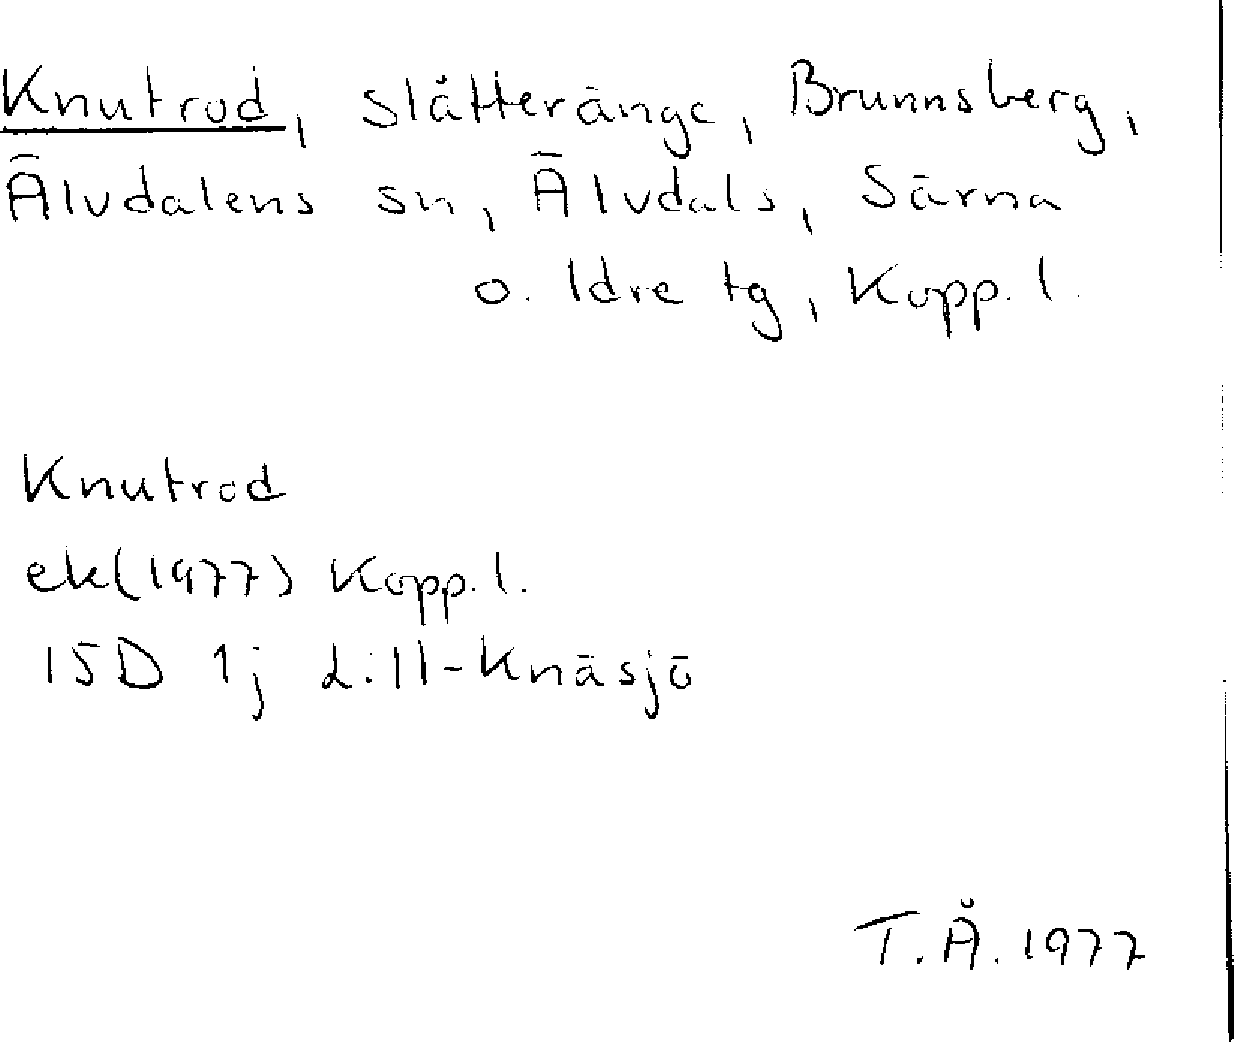 Knutrod, slåtteränge, Brunnsberg,
Älvdalens sn, Älvdals, Särna
o. Idre tg, Kopp. l.
Knutrod
ek(1977) Kopp. l.
15D 1j Lill-Knäsjö
T.Å. 1977